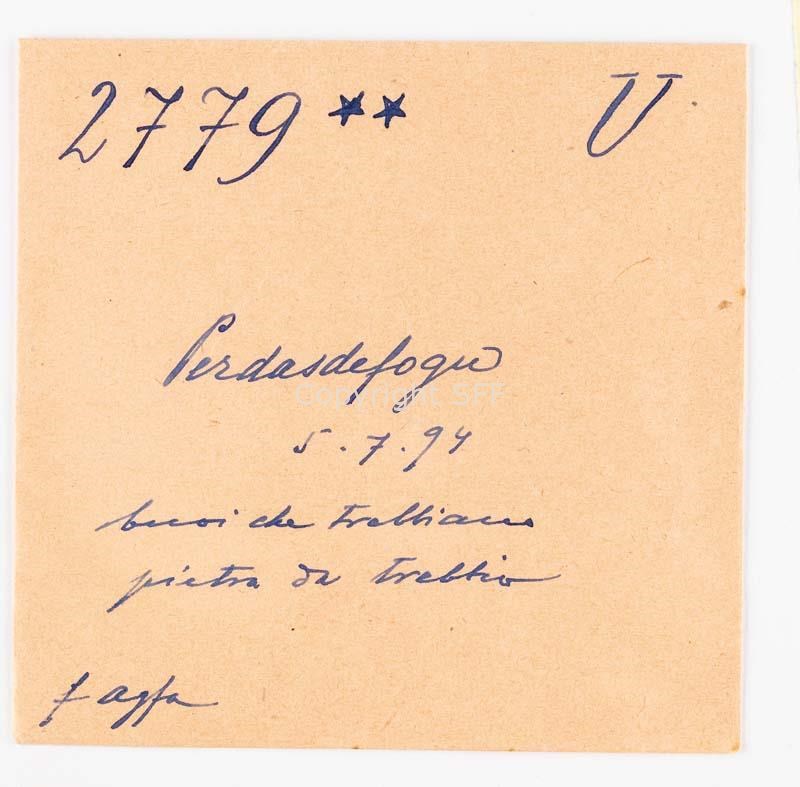 2779 ★★ U
Perdasdefogu
Copyright SFF
5.7.94
buoi che trebbiano
pietra da trebbio
f agfa